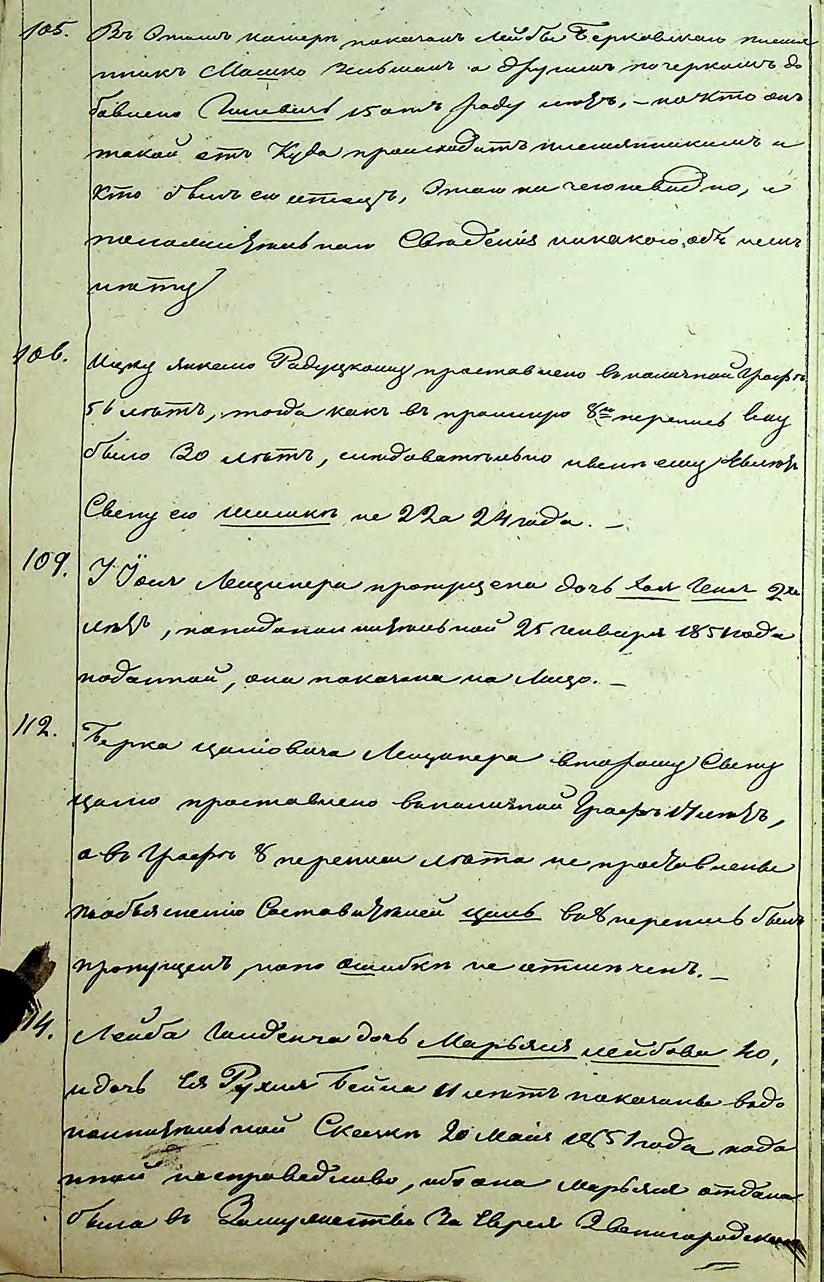 105. Въ этомъ номерѣ показанъ Лейбы Берковскаго племя
нникъ Мошко Зельманъ а другимъ почеркомъ до
бавлено 15 отъ роду лѣтъ, – но кто онъ
такой отъ Куда происходитъ племянникомъ и
кто былъ его отецъ, этого ни чего невидно, и
дополнительнаго Свѣденія никакого объ немъ
нѣту
106. Ицку Янкелю Радуцкому проставлено въ наличной Графѣ
56 лѣтъ, тогда какъ въ прошлую 8ю перепись ему
было 30 лѣтъ, слѣдовательно
Сыну его не 22 а 24 года. –
109. У Лещинера пропущена дочь Хая 2хъ
лѣтъ, по дополнительной 25 Генваря 1851 года
поданной, она показана на Лицо. –
112. Берка Цалювича Лещинера второму Сыну
Цалю проставлено въ наличной Графѣ 17 лѣтъ,
а въ Графѣ 8 переписи лѣта не проставлены
пообъясненію Составителей Цаль въ 8 перепись былъ
пропущенъ, но по ошибкѣ не отмѣченъ. –
14. Лейба дочь Марьяся Лейбова 40,
и дочь Ея Рухля Бейла 11 лѣтъ показаны въ до
полнительной Сказкѣ 20 Мая 1851 года пода
нной несправедливо, ибо она Марьяся отдана
была в Замужество За Еврея Звенигородскаго